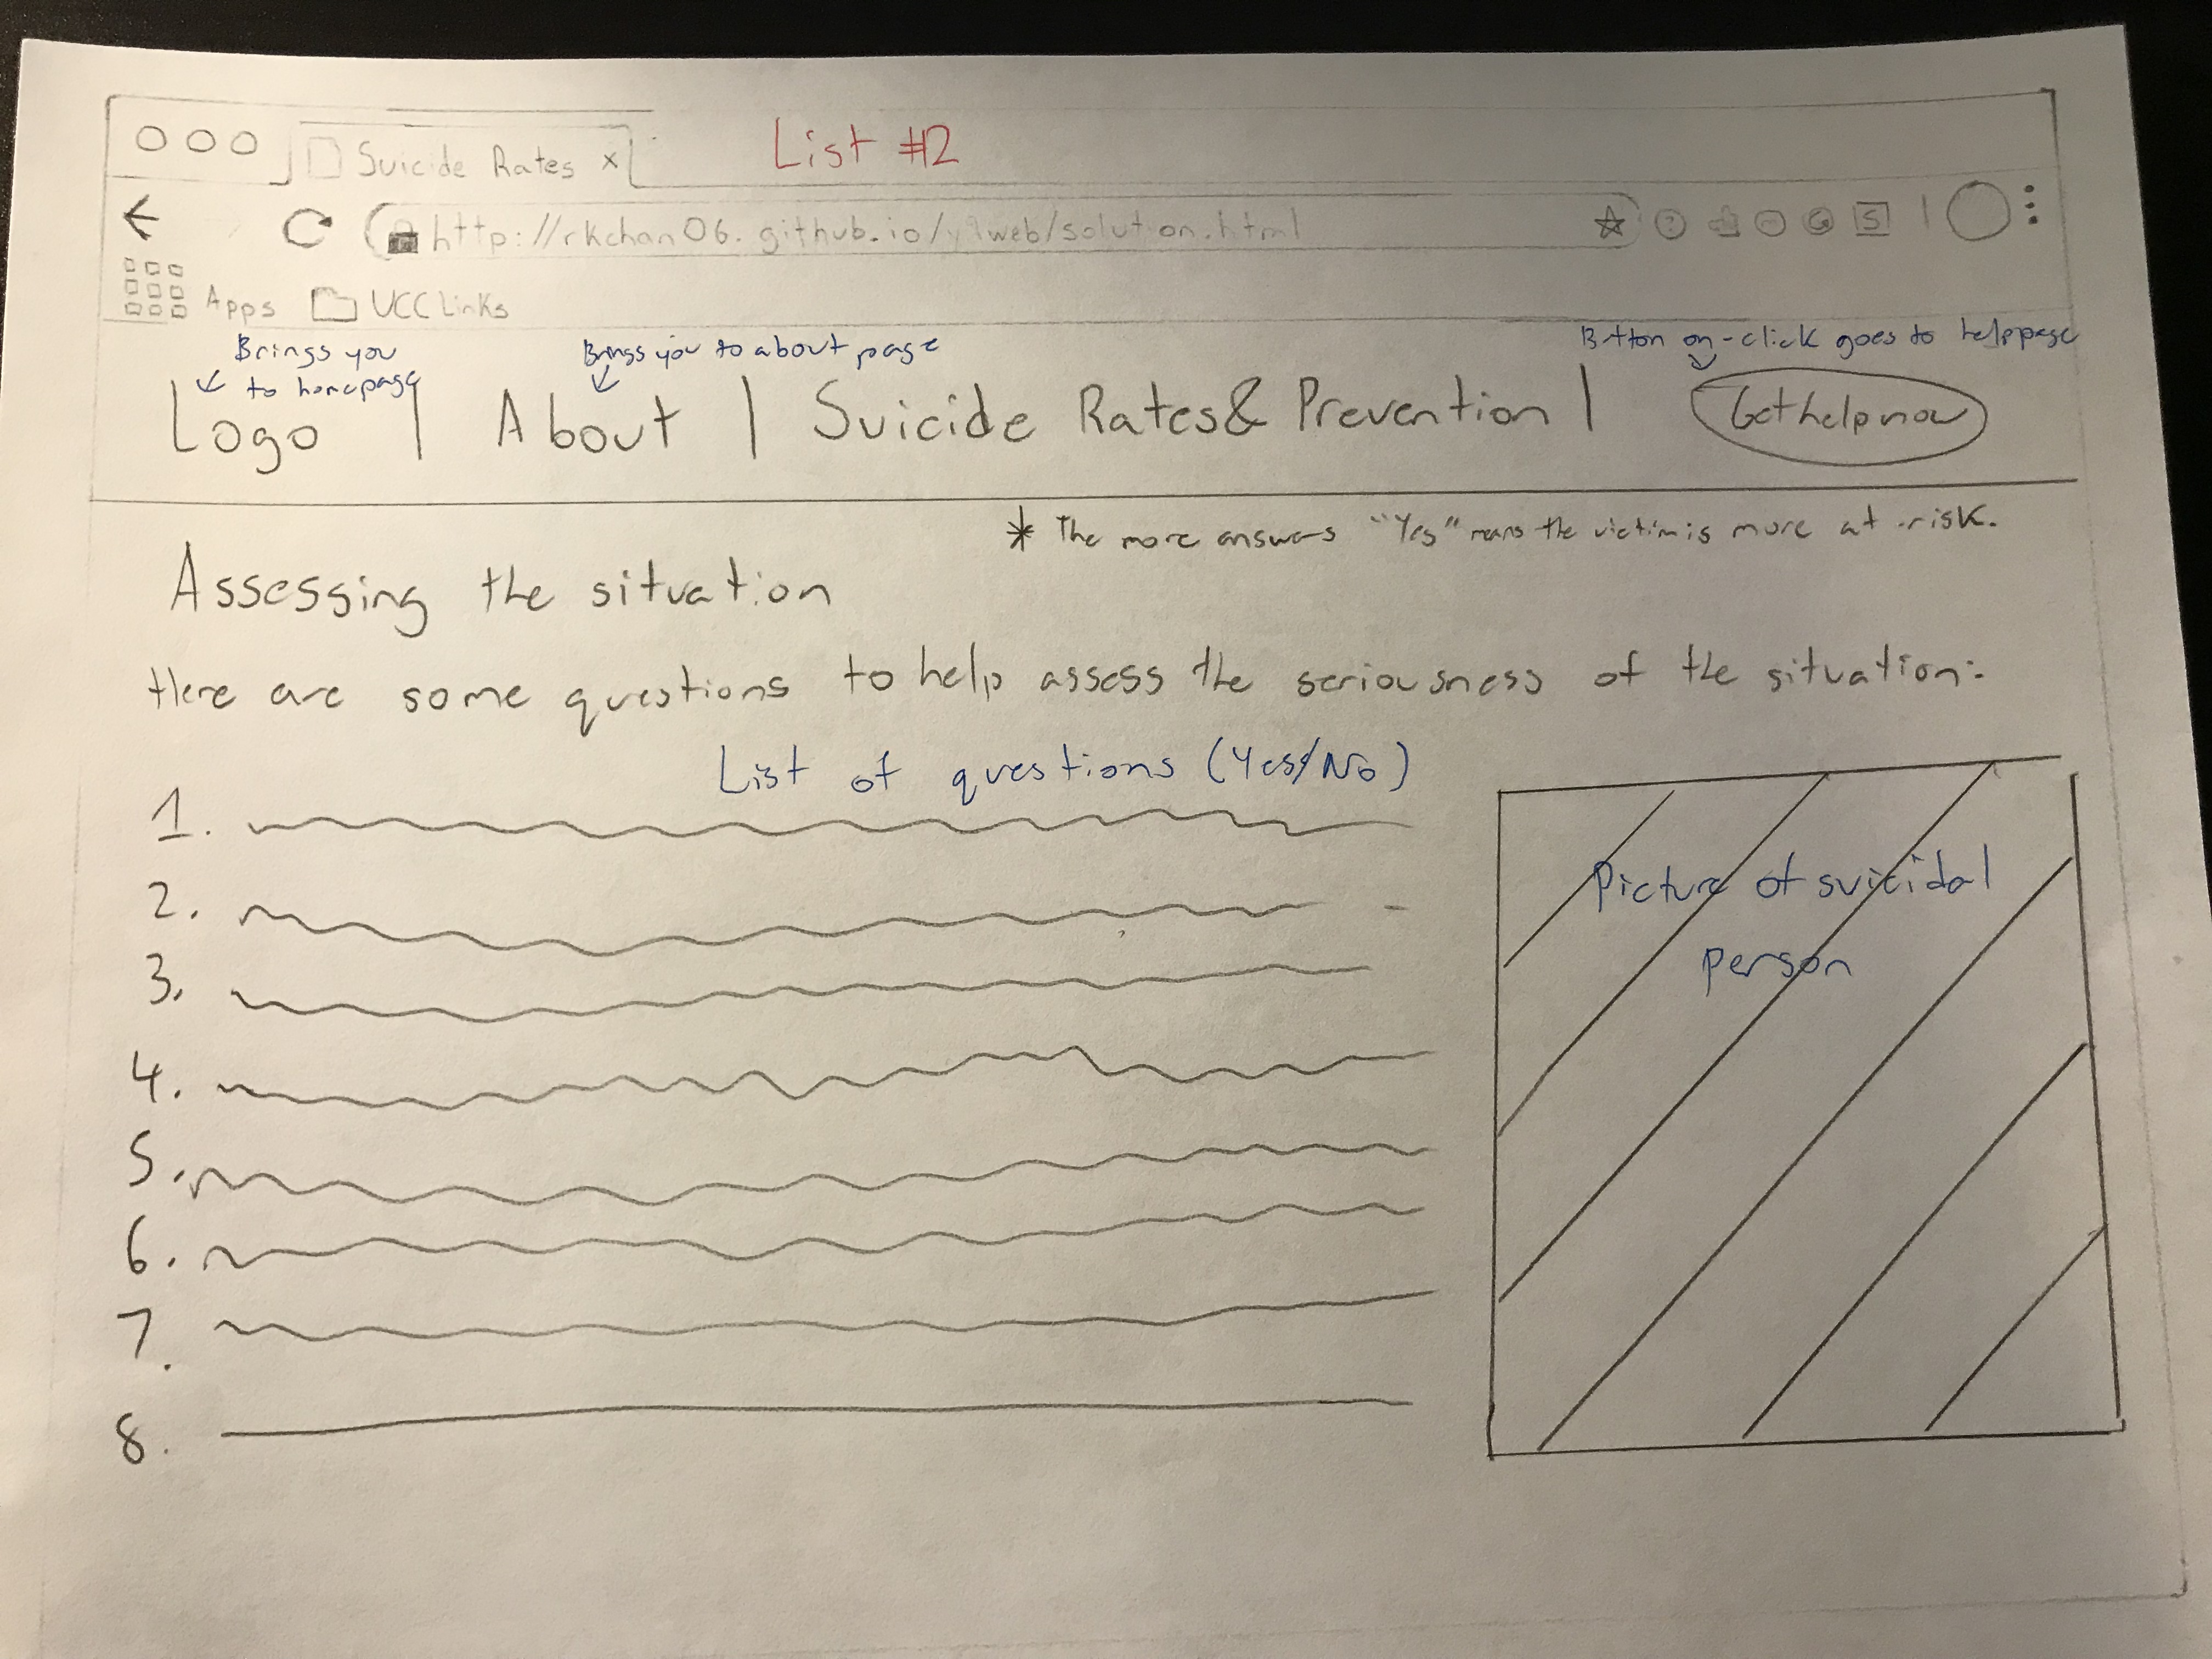 List #2
Suicide Rates x
http://rkchan06.github.io/y9web/solution.html
S
Apps UCC Links
Brings you
to homepage
Brings you to about page
Button on-click goes to helppage
Logo | About | Suicide Rates & Prevention | Get help now
* The more answers "Yes" means the victim is more at risk.
Assessing the situation
Here are some questions to help assess the seriousness of the situation:
List of questions (Yes/No)
1.
2.
3.
4.
5.
6.
7.
8.
Picture of suicidal
person